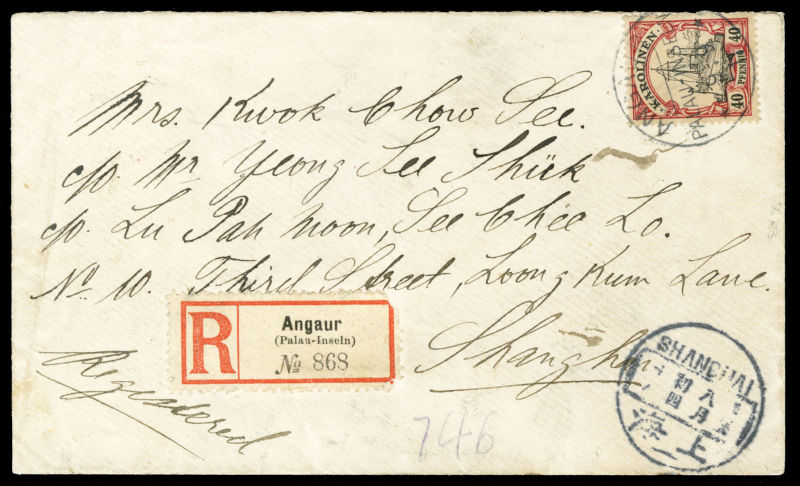 KAROLINEN.
40 PFENNIG 40
PALAU-INSELN
Mrs. Kwok Chow See.
c/o Mr Yeong See Shük
c/o. Lu Pah Moon, See Chee Lo.
No 10. Third Street, Loong Kum Lane.
Shanghai
R
Angaur
(Palau-Inseln)
No 868
Registered
746
SHANGHAI
八月
初四
上海